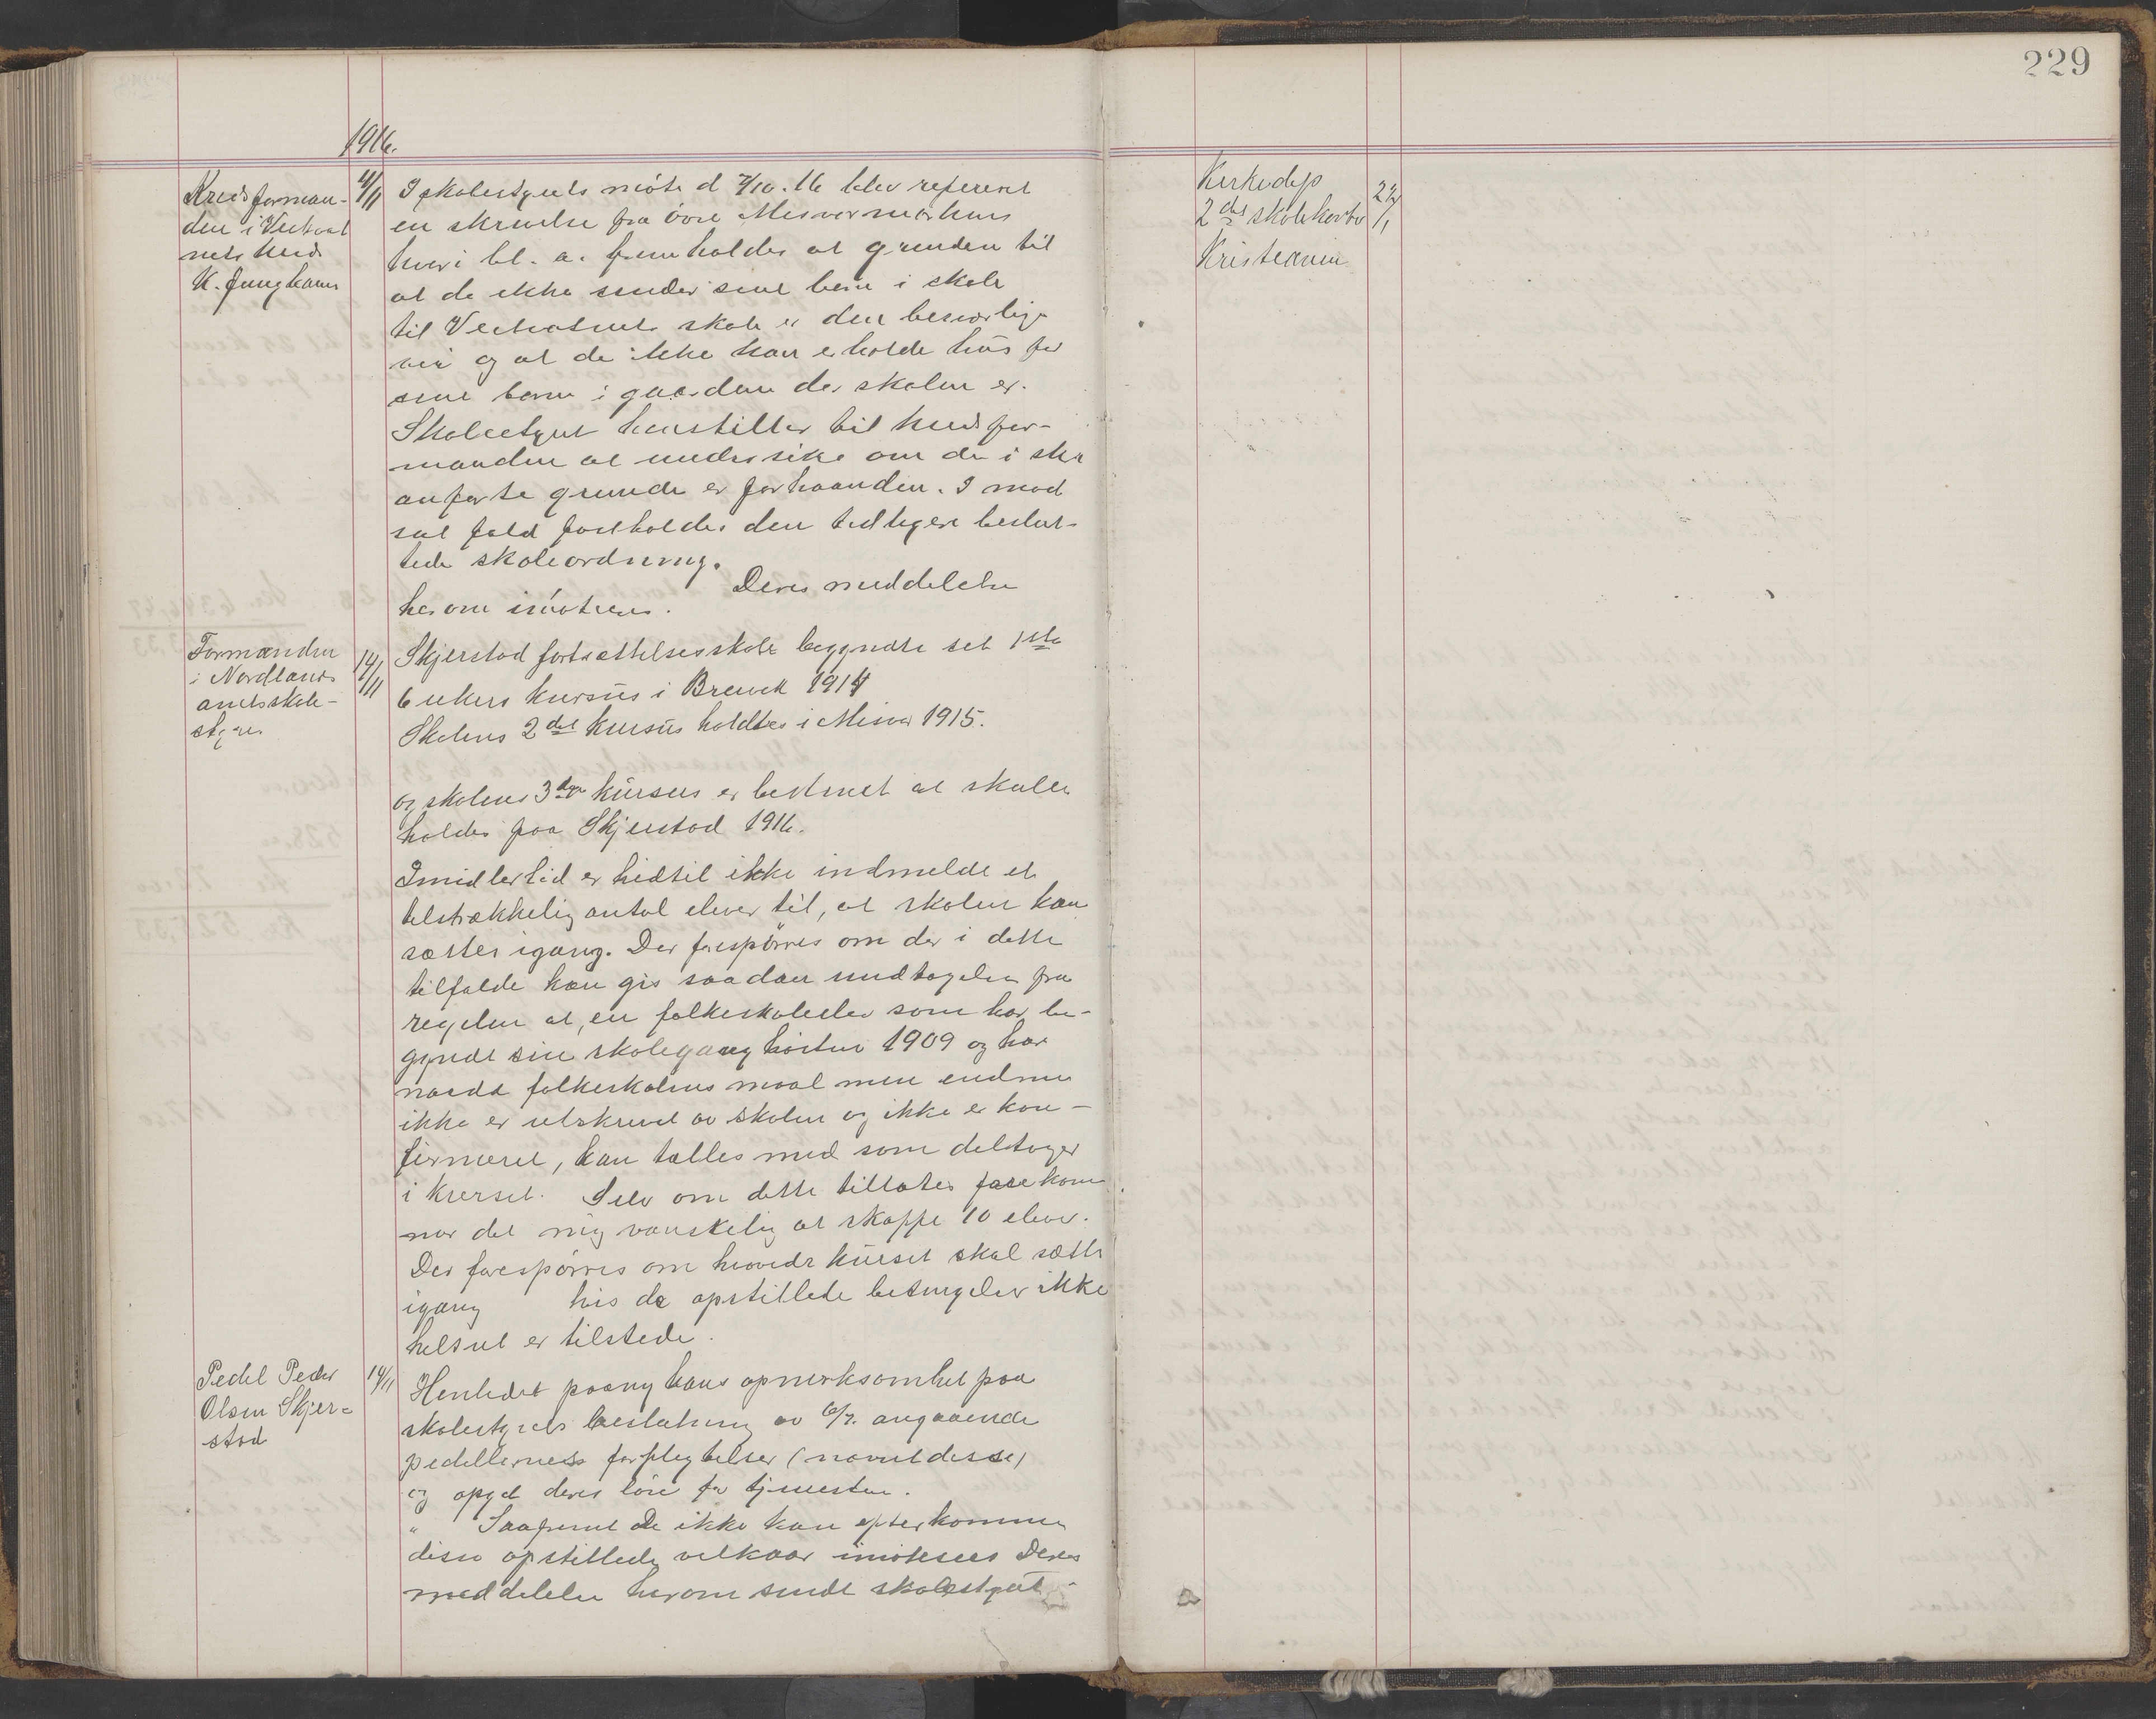 229
1916.
Kredsforman-
den i Vestvat
nets kreds
K. Junghans
4/11
I skolestyrets möte d 7/10. 16 blev referert
en skrivelse fra övre Misvær
hvori bl. a. fremholdes at grunden til
at de ikke sender sine børn i skole
til Vestvatnets skole er den besværlige
vei og at de ikke kan erholde hus for
sine børn i gaarden der skolen er.
Skolestyret henstiller til kredsfor-
manden at undersöke om de i skr
anførte grunde er forhaanden. I mod
sat fald fastholdes den tidligere beslut-
tede skoleordning.
Deres meddelelse
herom imötesees.
Formanden
i Nordlands
amtsskole-
styre
14/11
Skjerstad fortsættelsesskole begyndte set 1ste
6 ukers kursus i Breivik 1914
Skolens 2det kursus holdtes i Misvær 1915.
og skolens 3dje kursus er bestemt at skulle
holdes paa Skjerstad 1916.
Imidlertid er hidtil ikke indmeldt et
tilstrækkelig antal elever til, at skolen kan
sættes igang. Der forespörres om der i dette
tilfælde kan gis saadan undtagelse fra
regelen at, en folkeskoleelev som har be-
gyndt sin skolegang høsten 1909 og har
naadd folkeskolens maal men endnu
ikke er utskrevet av skolen og ikke er kon-
firmeret, kan tælles med som deltager
i kurset. Selv om dette tillates forekom
mer det mig vanskelig at skaffe 10 elever.
Der forespörres om hvorvidt kurset skal sættes
igang hvis de opstillede betingelser ikke
helt ut er tilstede.
Pedel Peder
Olsen Skjer-
stad
14/11
Henledet paany hans opmerksomhet paa
skolestyrets beslutning av 6/7. angaaende
pedellernes forpligtelser (nævnt disse)
og opgit deres lön for tjenesten.
" Saafremt De ikke kan efterkomme
disse opstillede vilkaar imötesees Deres
meddelelse herom sendt skolestyret
Kirkedep
2det skolekontor
Kristiania